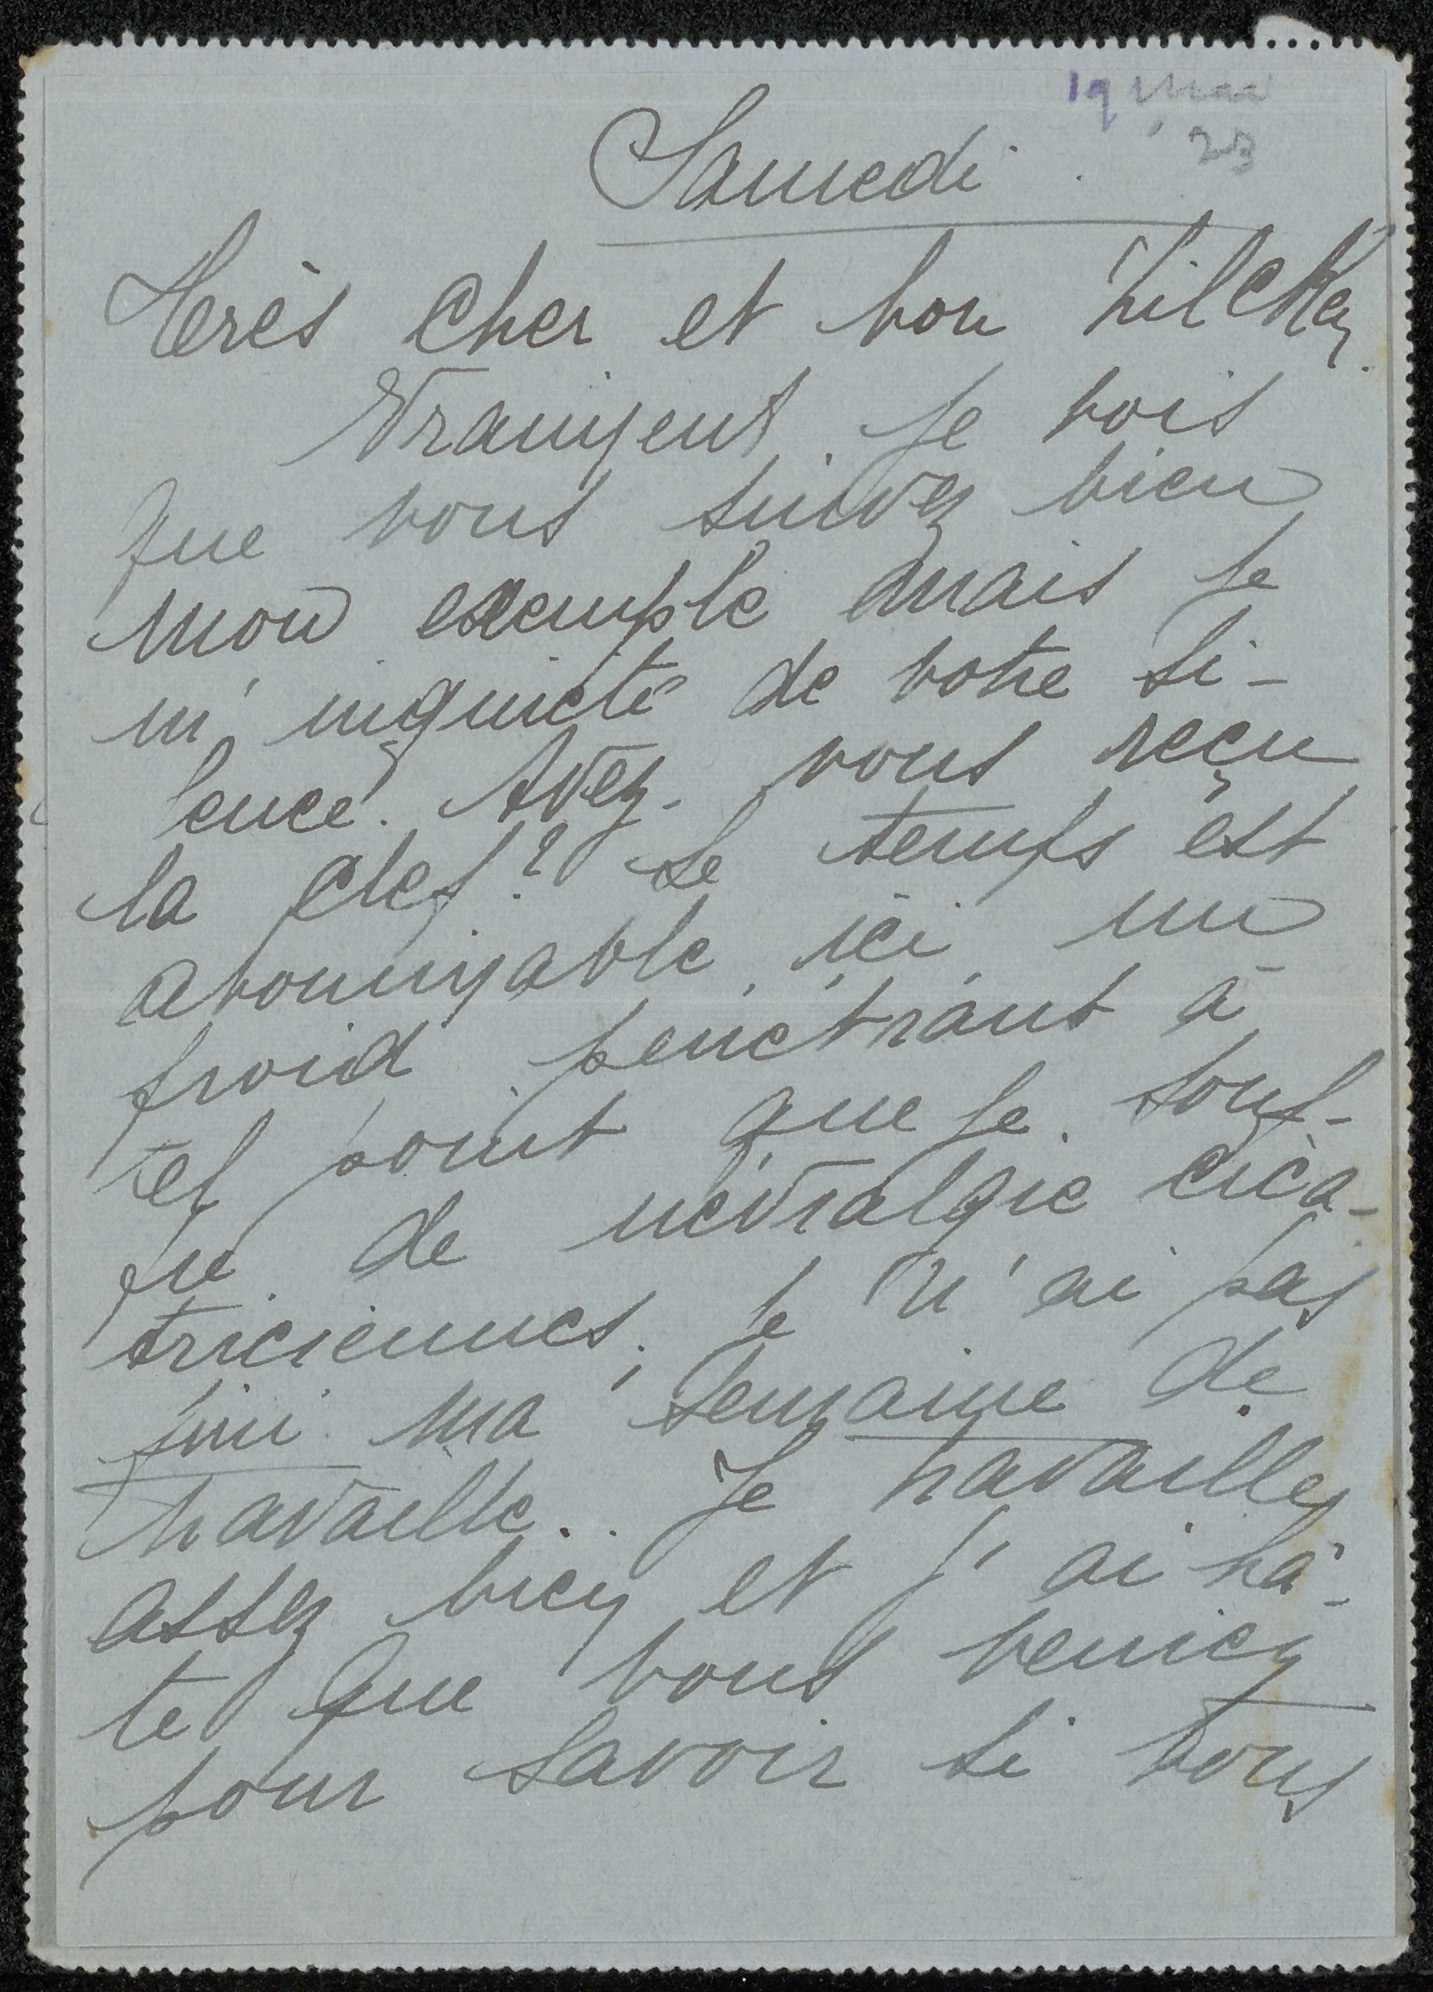 19 Mai
23
Samedi
Très cher et bon Zilcken
Vraiment je vois
que vous suivez bien
mon exemple mais je
m'inquiète de votre si-
lence. Avez-vous reçu
la clef? Le temps est
abominable ici un
froid pénétrant à
tel point que je souf-
fre de névralgie cica-
triciennes. Je n'ai pas
fini ma semaine de
travaille. Je travaille
assez bien et j'ai hâ-
te que vous veniez
pour savoir si vous